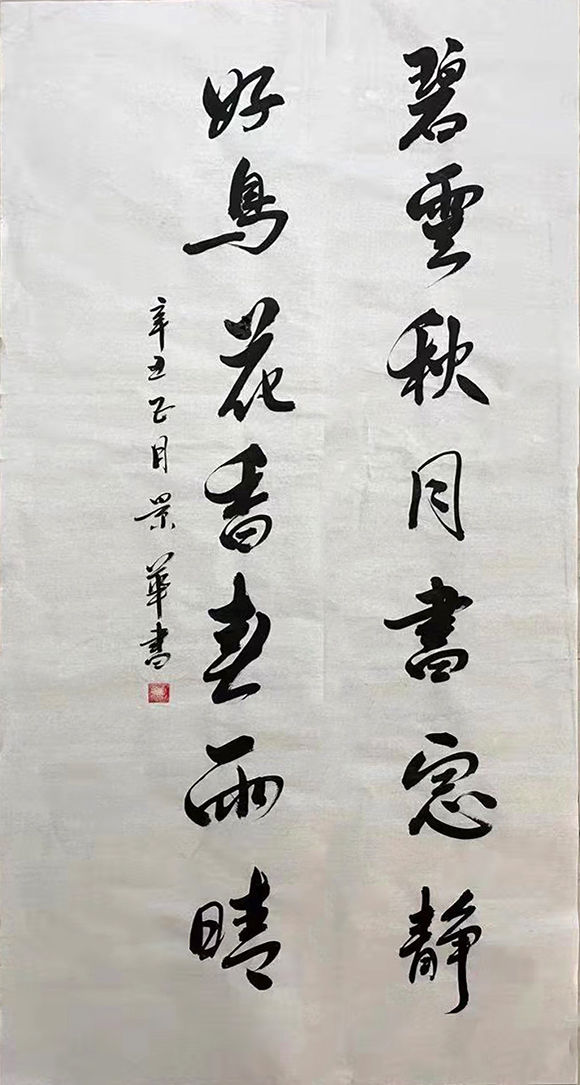 碧雲秋月書窓靜
好鳥花香春雨晴
辛丑正月景華書